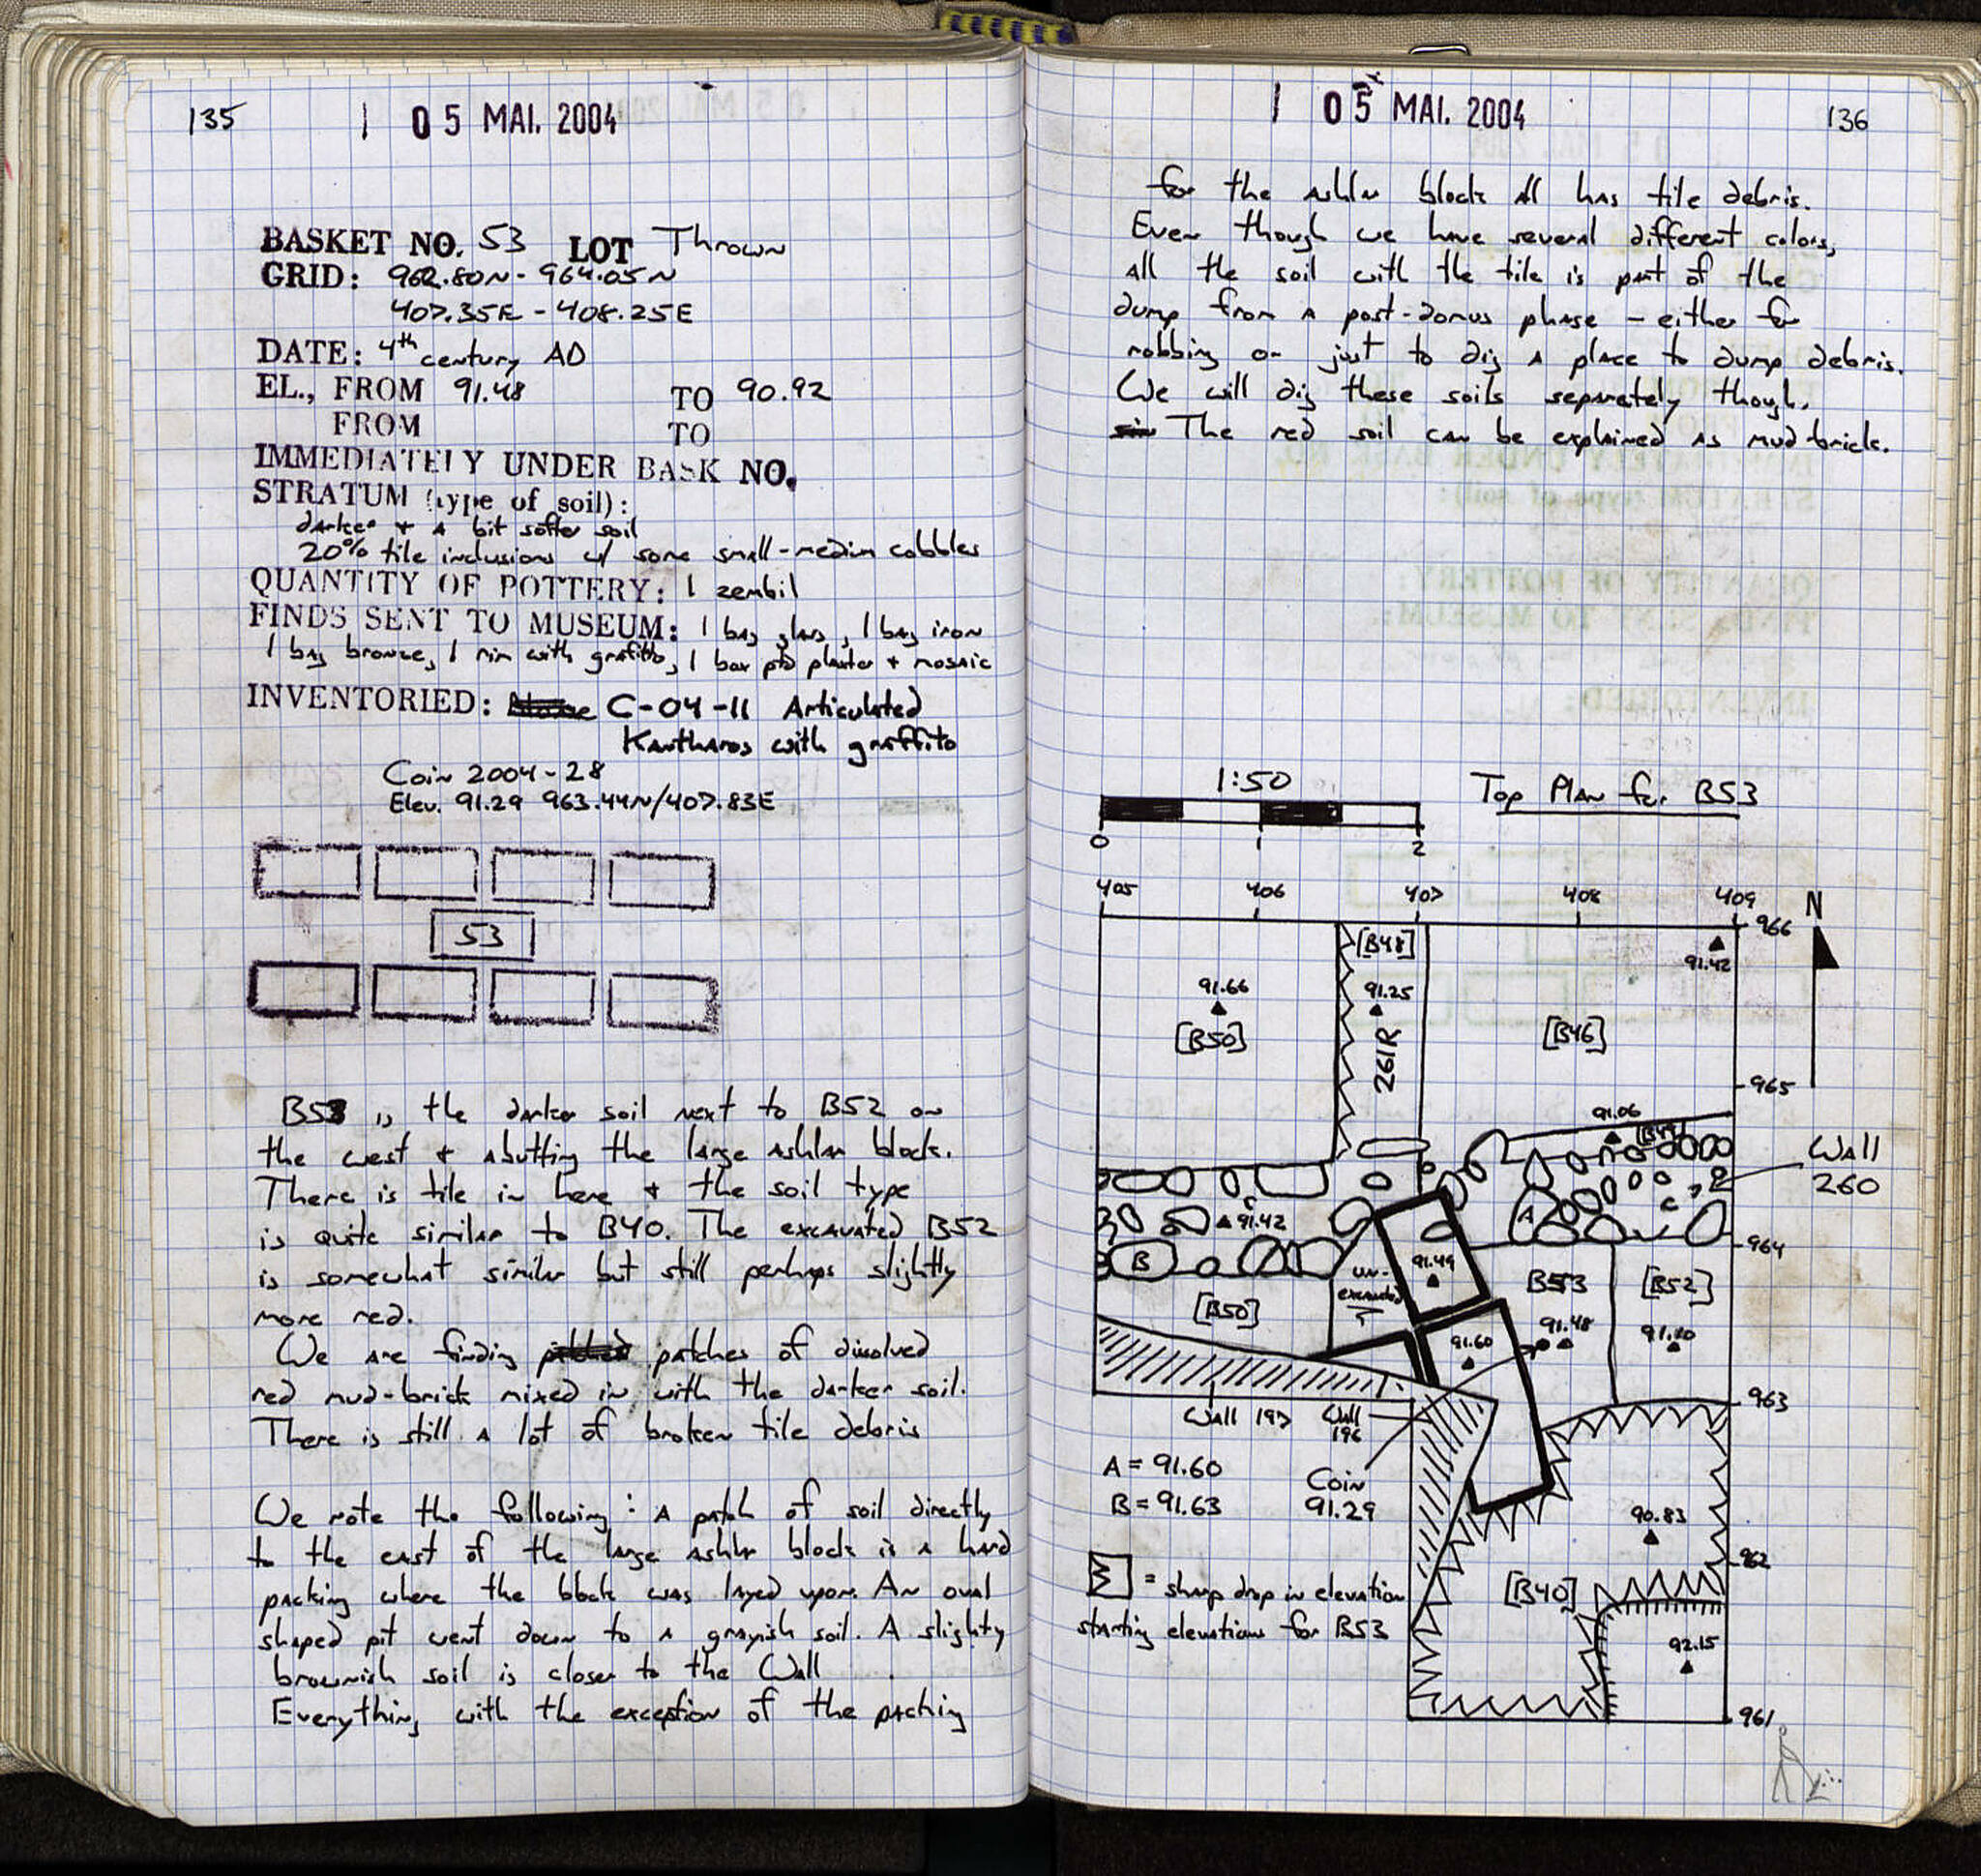 135
1 05 MAI. 2004
BASKET NO. 53 LOT Thrown
GRID: 962.80N - 964.05N
407.35E - 408.25E
DATE: 4th century AD
EL., FROM 91.48 TO 90.92
FROM TO
IMMEDIATELY UNDER BASK NO.
STRATUM (type of soil):
darker + a bit softer soil
20% tile inclusions w/ some small-medium cobbles
QUANTITY OF POTTERY: 1 zembil
FINDS SENT TO MUSEUM: 1 bag glass, 1 bag iron
1 bag bronze, 1 rim with grafitto, 1 box ptd plaster + mosaic
INVENTORIED: C-04-11 Articulated
Kantharos with graffito
Coin 2004-28
Elev. 91.29 963.44N/407.83E
53
B53 is the darker soil next to B52 on
the west + abutting the large ashlar block.
There is tile in here + the soil type
is quite similar to B40. The excavated B52
is somewhat similar but still perhaps slightly
more red.
We are finding patches of dissolved
red mud-brick mixed in with the darker soil.
There is still a lot of broken tile debris
We note the following: A patch of soil directly
to the east of the large ashlar block is a hard
packing where the block was layed upon. An oval
shaped pit went down to a grayish soil. A slighty
brownish soil is closer to the Wall
Everything with the exception of the packing
1 05 MAI. 2004
136
for the ashlar block all has tile debris.
Even though we have several different colors,
all the soil with the tile is part of the
dump from a post-domus phase - either for
robbing or just to dig a place to dump debris.
We will dig these soils separately though.
The red soil can be explained as mudbrick.
1:50
Top Plan for B53
0 1 2
405 406 407 408 409
N
966
[B48]
91.42
91.66
91.25
[B50]
261R
[B46]
965
91.06
[B49]
Wall
260
91.42
A
964
B
91.49
B53
[B52]
un-
excavated
[B50]
91.48
91.60
91.10
963
Wall 197
Wall
196
A = 91.60
B = 91.63
Coin
91.29
90.83
962
= sharp drop in elevation
[B40]
starting elevations for B53
92.15
961